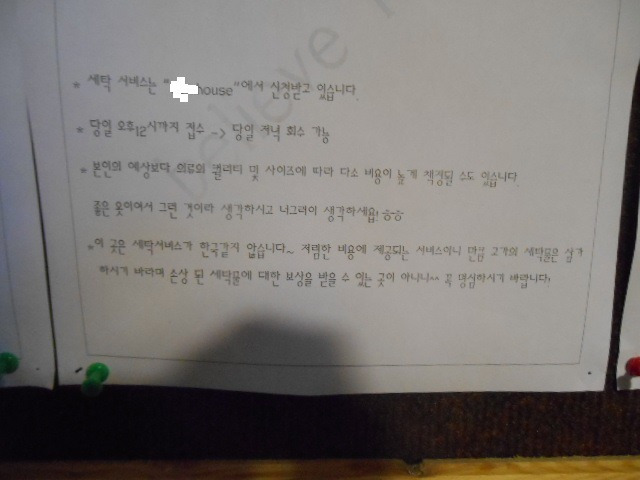 believe
* 세탁 서비스는 "house"에서 신청받고 있습니다.
* 당일 오후12시까지 접수 -> 당일 저녁 회수 가능
* 본인의 예상보다 의류의 퀄리티 및 사이즈에 따라 다소 비용이 높게 책정될 수도 있습니다.
좋은 옷이어서 그런 것이라 생각하시고 너그러이 생각하세요! ㅎㅎ
*이 곳은 세탁서비스가 한국같지 않습니다~ 저렴한 비용에 제공되는 서비스이니 만큼 고가의 세탁물은 삼가
하시기 바라며 손상 된 세탁물에 대한 보상을 받을 수 있는 곳이 아니니^^ 꼭 명심하시기 바랍니다!